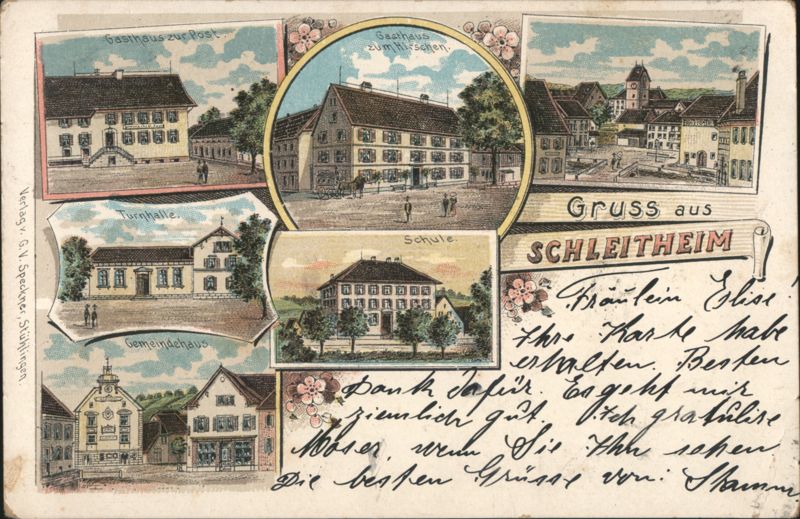 Gasthaus zur Post.
Gasthaus
zum Hirschen.
Gruss aus
SCHLEITHEIM
Turnhalle.
Schule.
Gemeindehaus
Verlag v. G. V. Speckner, Stühlingen.
Fräulein Elise!
Ihre Karte habe
erhalten. Besten
Dank dafür. Es geht mir
ziemlich gut. Ich gratulire
Moser, wenn Sie Ihn sehen
Die besten Grüsse von: Stamm